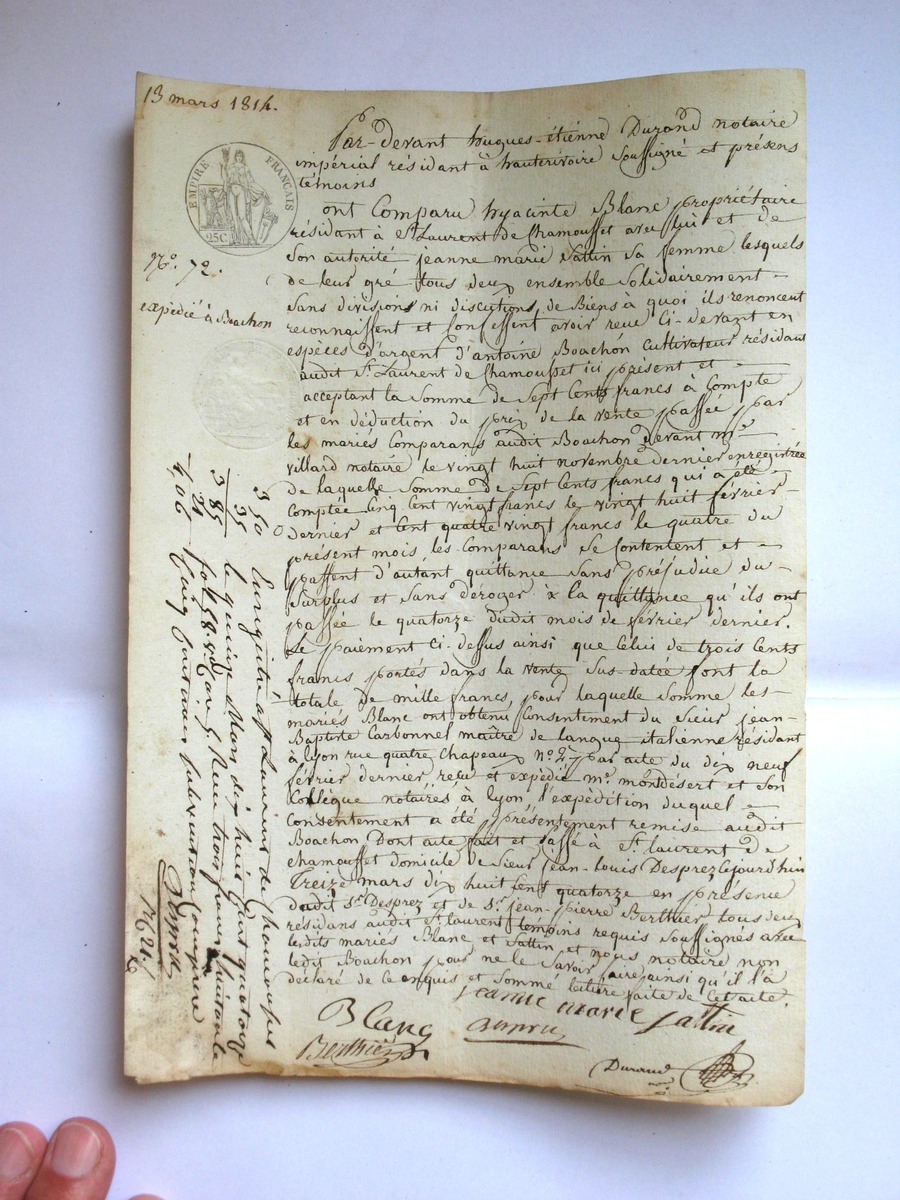 13 mars 1814.
EMPIRE FRANÇAIS
25C
N.o 72.
expédié à Boachon
Par-devant hugues-étienne Durand notaire
impérial résidant à hauterivoire soussigné et présens
témoins
ont Comparu hyacinte Blanc propriétaire
résidant à St Laurent de Chamousset avec lui et de
Son autorité jeanne marie Sattin Sa femme lesquels
de leur gré tous deux ensemble Solidairement
Sans divisions ni discutions de Biens à quoi ils renoncent
reconnaissent et Confessent avoir reçu Ci-devant en
espèces d'argent d'antoine Boachon Cultivateur résidant
audit St Laurent de Chamousset ici présent et
acceptant la Somme de Sept Cents francs à Compte
et en déduction du prix de la vente passée par
les mariés Comparans audit Boachon devant me
villard notaire le vingt huit novembre dernier enregistrée
de laquelle Somme de Sept Cents francs qui a été
Comptée Cinq Cent vingt francs le vingt huit février
dernier et Cent quatre vingt francs le quatre du
présent mois les Comparans Se Contentent et
passent d'autant quittance Sans préjudice du
Surplus et Sans déroger à la quittance qu'ils ont
passée le quatorze dudit mois de février dernier.
Le paiement Ci-dessus ainsi que Celui de trois Cents
francs portés dans la vente Sus-datée font la
totale de mille francs, pour laquelle Somme les
mariés Blanc ont obtenu Consentement du Sieur jean-
Baptiste Carbonnel maître de langue italienne résidant
à lyon rue quatre Chapeau No. 2 par acte du dix neuf
février dernier reçu et expédié me. montdésert et Son
Collègue notaires à lyon, l'expédition duquel
Consentement a été présentement remise audit
Boachon Dont acte fait et passé à St laurent de
chamousset domicile de Sieur jean-Louis Desprez Cejourd'hui
Treize mars dix huit Cent quatorze en présence
dudit Sr Desprez et de Sr. jean-pierre Berthier tous deux
résidans audit St laurent témoins requis Soussignés avec
lesdits mariés Blanc et Sattin et nous notaire non
ledit Boachon pour ne le Savoir faire ainsi qu'il l'a
déclaré de Ce enquis et Sommé lecture faite de Cet acte.
jeanne marie Sattin
Blanc
Berthier
Durand
Enregistré à St Laurent de Chamousset
le quinze Mars dix huit Cent quatorze
fo
3 50
35
3 85
21
4,06